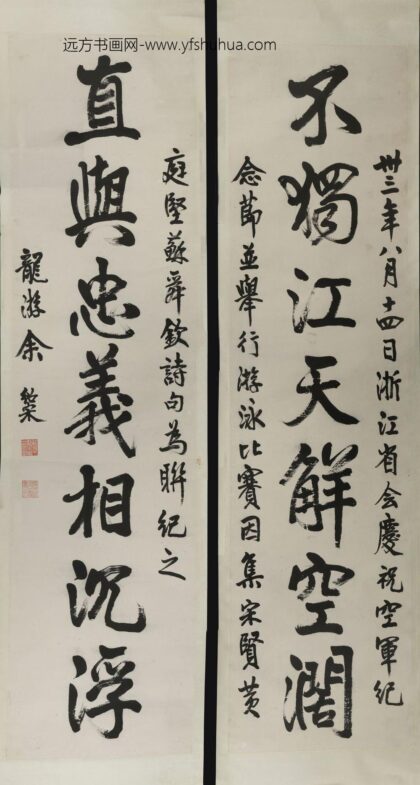 远方书画网-www.yfshuhua.com
卅三年八月十四日浙江省会慶祝空軍紀
不獨江天解空濶
念節並舉行游泳比賽因集宋賢黄
庭堅蘇舜欽詩句為聯紀之
直與忠義相沉浮
龍游余